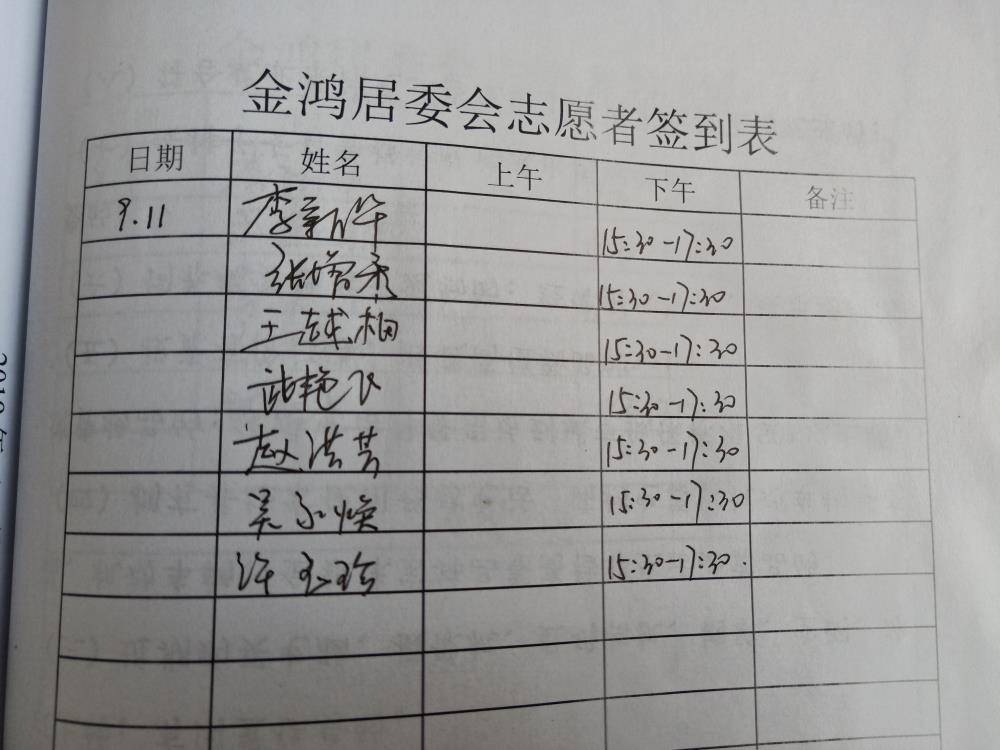 金鸿居委会志愿者签到表
日期 姓名 上午 下午 备注
9.11 李新华 15:30-17:30
张增柔 15:30-17:30
王越相 15:30-17:30
武艳飞 15:30-17:30
赵洪芸 15:30-17:30
吴永焕 15:30-17:30
许玉珍 15:30-17:30.